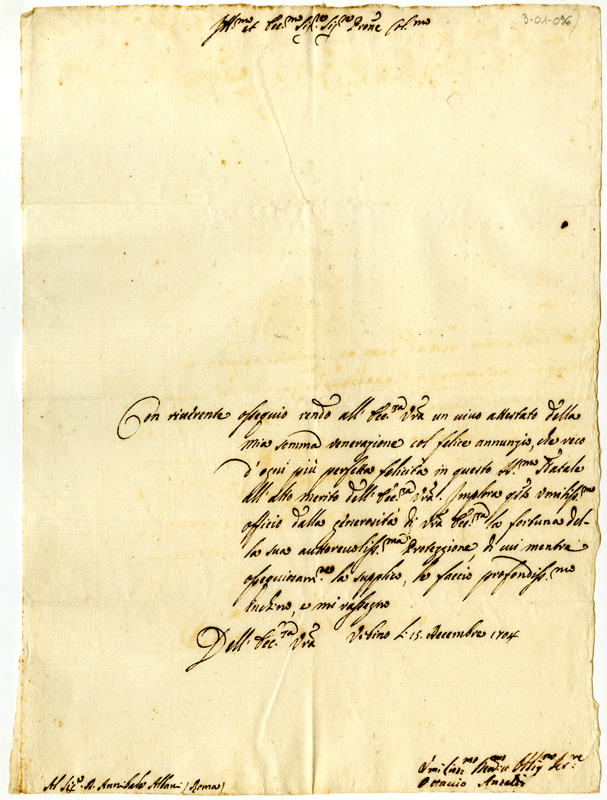 3-01-036
Ill.mo et Ecc.mo Sig.re Sig.re Prone Col.mo
Con riverente ossequio rendo all' Ecc.za Vra un vivo attestato della
mia somma venerazione col felice annunzio, che reco
d'ogni più perfetta felicità in questo S.mo Natale
all'alto merito dell' Ecc.za Vra. Implora questo umiliss.mo
officio dalla generosità di Vra Ecc.za la fortuna del-
la sua autorevoliss.ma Protezzione, di cui mentre
ossequiosam.te la supplico, le faccio profondiss.mo
inchino, e mi rassegno
Dell' Ecc.za Vra Urbino li 15. Decembre 1704
Umiliss.mo Devot.mo Obblig.mo Ser.re
Ottavio
Al Sig.r D. Annibale Albani (Roma)